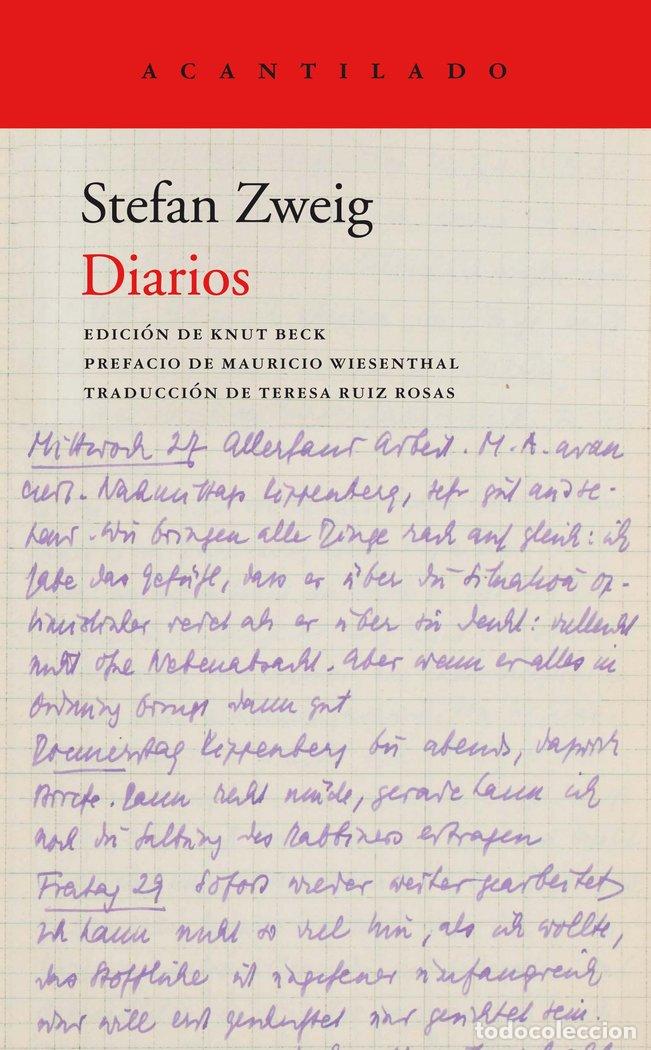 ACANTILADO
Stefan Zweig
Diarios
EDICIÓN DE KNUT BECK
PREFACIO DE MAURICIO WIESENTHAL
TRADUCCIÓN DE TERESA RUIZ ROSAS
Mittwoch 27 Allerhand Arbeit. M. A. avan
ciert. Nachmittags Kippenberg, sehr gut
. Wir bringen alle Dinge rasch auf gleich: ich
habe das Gefühl, dass er über die Situation op-
timistischer redet als er über sie denkt: vielleicht
nicht ohne Nebenabsicht. Aber wenn er alles in
Ordnung bringt dann gut
Donnerstag Kippenberg bis abends, dazwisch
Briefe. Dann recht müde, gerade kann ich
noch die Salbung des Rabbiners ertragen
Freitag 29 Sofort wieder weiter gearbeitet
Ich kann nicht so viel tun, als ich wollte,
das Stoffliche ist ungeheuer umfangreich
und will erst gesichtet sein.
todocoleccion